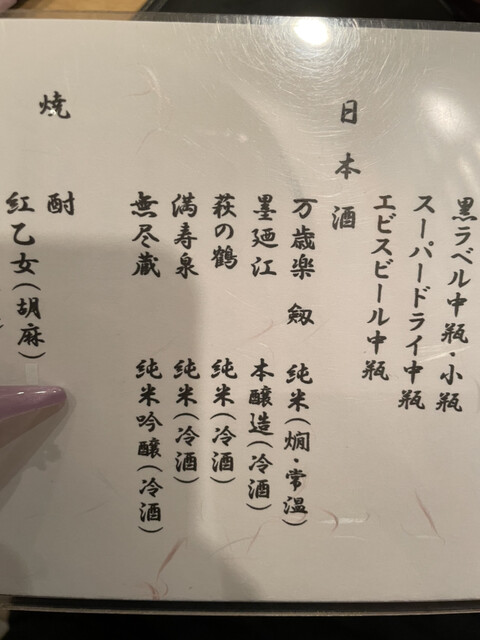 黒ラベル中瓶・小瓶
スーパードライ中瓶
エビスビール中瓶
日本酒
万歳楽 剱 純米(燗・常温)
墨廼江 本醸造(冷酒)
萩の鶴 純米(冷酒)
満寿泉 純米(冷酒)
無尽蔵 純米吟醸(冷酒)
焼酎
紅乙女(胡麻)